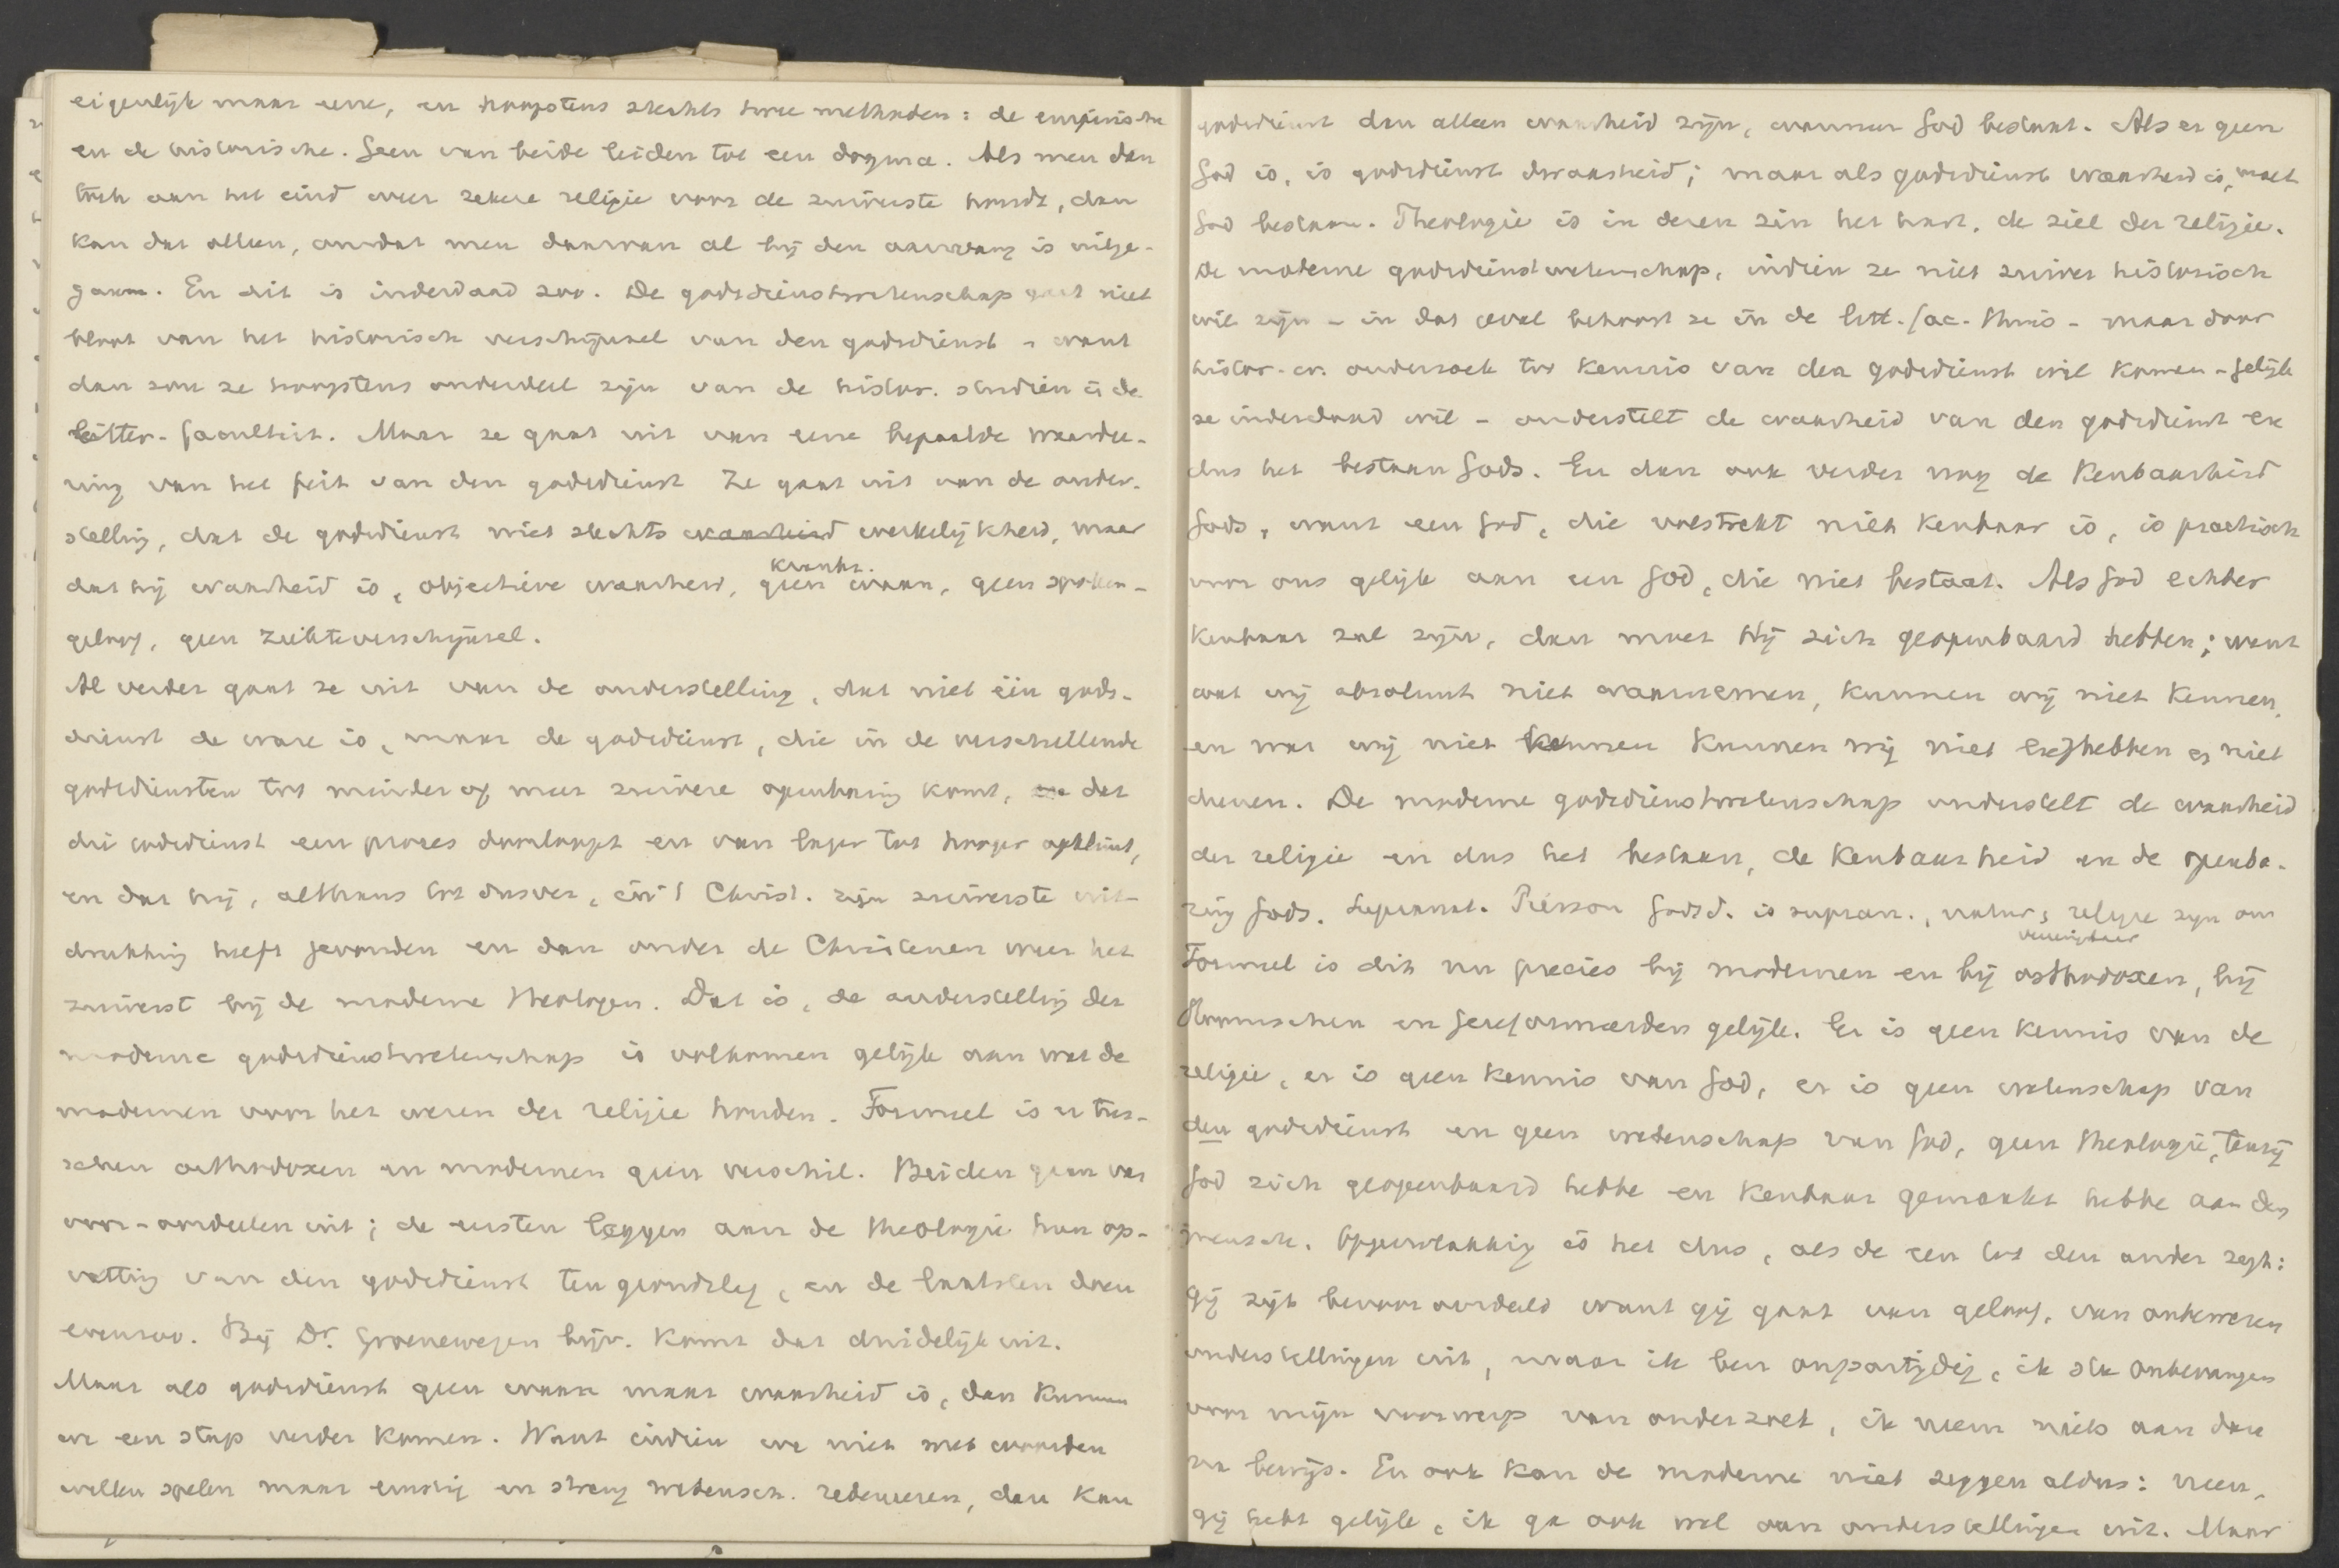 eigenlijk maar eene, en hoogstens slechts twee methoden: de empirische
en de historische. Geen van beide leiden tot een dogma. Als men dan
toch aan het eind weer zekere religie voor de zuiverste houdt, dan
kan dat alleen, omdat men daarvan al bij den aanvang is uitge-
gaan. En dit is inderdaad zoo. De godsdienstwetenschap gaat niet
bloot van het historisch verschijnsel van den godsdienst - want
dan zou ze hoogstens onderdeel zijn van de histor. studiën in de
litter. faculteit. Maar ze gaat uit van eene bepaalde waardee-
ring van het feit van den godsdienst Ze gaat uit van de onder-
stelling, dat de godsdienst niet slechts waarheid werkelijkheid, maar
dat hij waarheid is, objectieve waarheid, geen waan, geen spoken-
krankz.
geloof, geen ziekteverschijnsel.
Al verder gaat ze uit van de onderstelling, dat niet één gods-
dienst de ware is, maar de godsdienst, die in de verschillende
godsdiensten tot minder of meer zuivere openbaring komt, en dat
die godsdienst een proces doorloopt en van lager tot hooger opklimt,
en dat hij, althans tot dusver, in 't Christ. zijn zuiverste uit-
drukking heeft gevonden en dan onder de Christenen weer het
zuiverst bij de moderne theologen. Dat is, de onderstelling der
moderne godsdienstwetenschap is volkomen gelijk aan wat de
modernen voor het wezen der religie houden. Formeel is er tus-
schen orthodoxen en modernen geen verschil. Beiden gaan van
voor-oordeelen uit; de eersten leggen aan de theologie hun op-
vatting van den godsdienst ten grondslag, en de laatsten doen
evenzoo. Bij Dr. Groenewegen bijv. komt dat duidelijk uit.
Maar als godsdienst geen waan maar waarheid is, dan kunnen
we een stap verder komen. Want indien we niet met woorden
willen spelen maar ernstig en streng wetensch. redeneeren, dan kan
godsdienst dan alleen waarheid zijn, wanneer God bestaat. Als er geen
God is, is godsdienst dwaasheid; maar als godsdienst waarheid is, moet
God bestaan. Theologie is in dezen zin het hart, de ziel der religie.
De moderne godsdienstwetenschap, indien ze niet zuiver historisch
wil zijn - in dat geval behoort ze in de litt. fac. thuis - maar door
histor. en. onderzoek tot kennis van den godsdienst wil komen - gelijk
ze inderdaad wil - onderstelt de waarheid van den godsdienst en
dus het bestaan Gods. En dan ook verder nog de kenbaarheid
Gods, want een God, die volstrekt niet kenbaar is, is practisch
voor ons gelijk aan een God, die niet bestaat. Als God echter
kenbaar zal zijn, dan moet Hij zich geopenbaard hebben; want
wat wij absoluut niet waarnemen, kunnen wij niet kennen,
en wat wij niet kennen kunnen wij niet liefhebben en niet
dienen. De moderne godsdienstwetenschap onderstelt de waarheid
der religie en dus het bestaan, de kenbaarheid en de openba-
ring Gods. Supranat. Pierson Godsd. is supran., natur, religie zijn on
vereenigbaar
Formeel is dit nu precies bij modernen en bij orthodoxen, bij
Roomschen en Gereformeerden gelijk. Er is geen kennis van de
religie, er is geen kennis van God, er is geen wetenschap van
den godsdienst en geen wetenschap van God, geen theologie, tenzij
God zich geopenbaard hebbe en kenbaar gemaakt hebbe aan den
mensch. Oppervlakkig is het dus, als de een tot den ander zegt:
Gij zijt bevooroordeeld want gij gaat van geloof, van onbewezen
onderstellingen uit, maar ik ben onpartijdig, ik sta onbevangen
voor mijn voorwerp van onderzoek, ik neem niets aan dan
na bewijs. En ook kan de moderne niet zeggen aldus: neen,
gij hebt gelijk, ik ga ook wel van onderstellingen uit. Maar